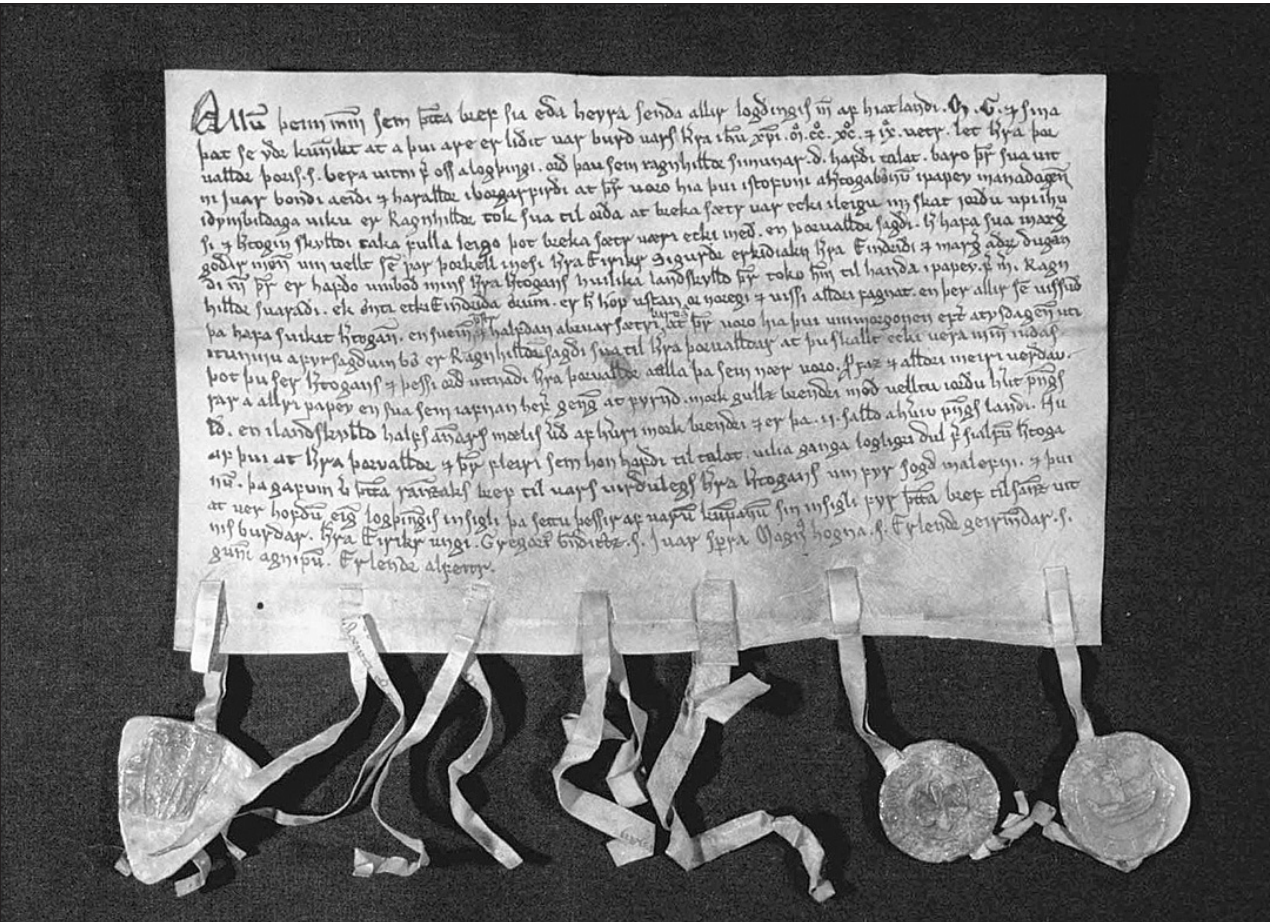 Allū þeim mm̄ sem þtta bref sia eða heyra senda allir logðingis m̄ af hiatlandi. Q. G. ⁊ sina
þat se yðr kunnikt at a þui are er liðit var burð vars hr̄a ihū xp̄i. m. cc. xc. ⁊ ix. vetr. let hr̄a þor
vallðr þoris. s. bera vitni f̄ oss a logþingi. orð þau sem ragnhillðr simunar. d. hafði talat. varo þr̄ sua vit
ni Juar bondi aeiði ⁊ harallðr i borgarfirði at þr̄ voro hia þui i stofuni a hr̄togabǿnū i papey manadagen̄
i dymbildaga viku er Ragnhillðr tok sua til orða at breka sætr var ecki i leigu m̄ skat iorðu upi i hu
si ⁊ hr̄togin skylldi taka fulla leigo þot breka sætr væri ecki með. en þorvallðr sagði. hr̄ hafa sua marḡ
goðir men̄ um vellt sē þar þorkell i nesi hr̄a Eirikr Sigurðr erkidiakn hr̄a Eindriði ⁊ marḡ aðr̄ dugan
di m̄ þr̄ er hafðo umboð mins hr̄a hr̄togans huilika landskylld þr̄ toko hm̄ til handa i papey. f̄ m̄. Ragn
hilldr suaraði. ek anti ecki Eindriða orum. er h̄ hop ustan or noregi ⁊ vissi alldri fagnat. en þer allir sē vissud
þa hafa suikit hr̄togan. en suein ⁊ halfdan abruar sætri at þr̄ voro hia þui um morgonen eft̄ a tysdagen̄ uti
i tuninu a fyrsagðum bǿ er Ragnhilldr sagði sua til hr̄a þorvalldar at þu skallt ecki vera min̄ iudas
þot þu ser hr̄togans ⁊ þessi orð vitnadi hr̄a þorvalldr a alla þa sem nær voro.
far a allri papey en sua sem iafnan hef̄ genḡ at fyrnd. mork gullz brendri með velltu iordu huit pn̄gs
lð. en i landskylld halfs an̄ars mælis vð af huri mork brendri ⁊ er þa. ij. salld a huiu pn̄gs landi. Nu
af þui at hr̄a þorvalldr ⁊ þr̄ fleiri sem hon hafði til talat. vilia ganga logligri dul f̄ sialfū hr̄toga
nū. þa gafum v̄ þtta ran̄zaks bref til vars virðulegs hr̄a hr̄togans um fyr sogd malefni. ⁊ þui
at ver hofðū eiḡ logþingis insigli þa settu þessir af varū kūpanū sin insigli fyr þtta bref til san̄z vit
nisburdar. hr̄a Eirikr ungi. Gregori᷎ Juar sp̄ra Magn᷒ hogna. s. Erlendr geirm̄dar. s.
gun̄i agnipū. Erlendr